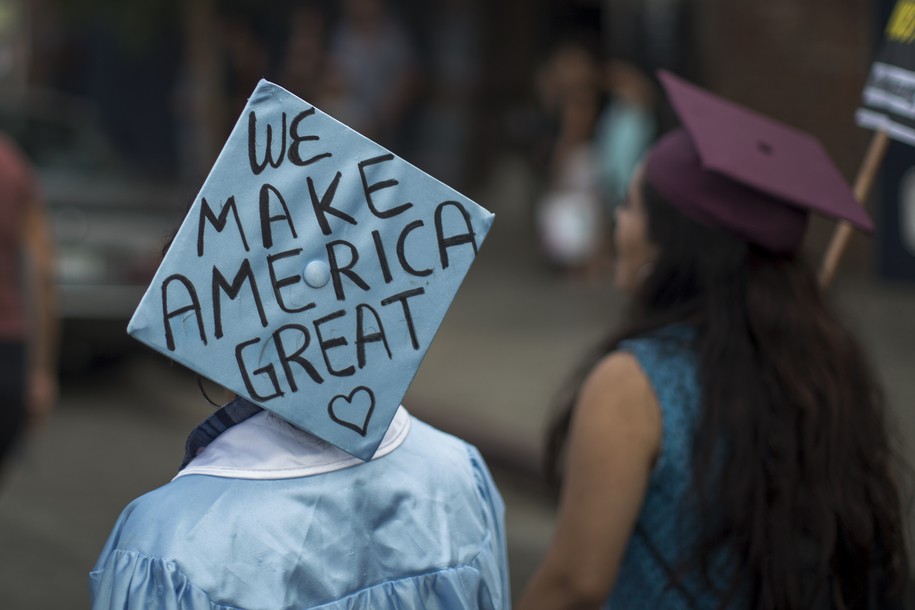 WE
MAKE
AMERICA
GREAT